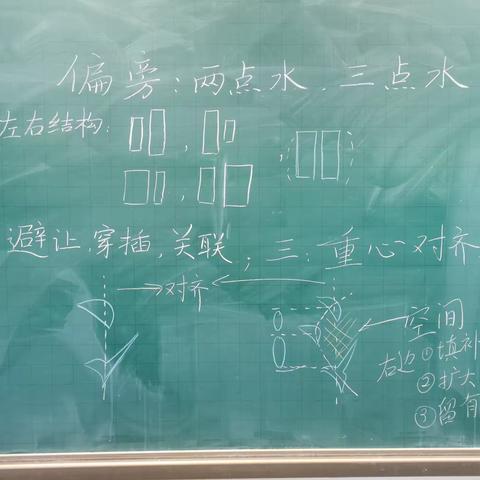 偏旁:两点水、三点水
左右结构:
避让,穿插,关联;三:重心对齐
对齐
空间
右边①填补
②扩大
③留有